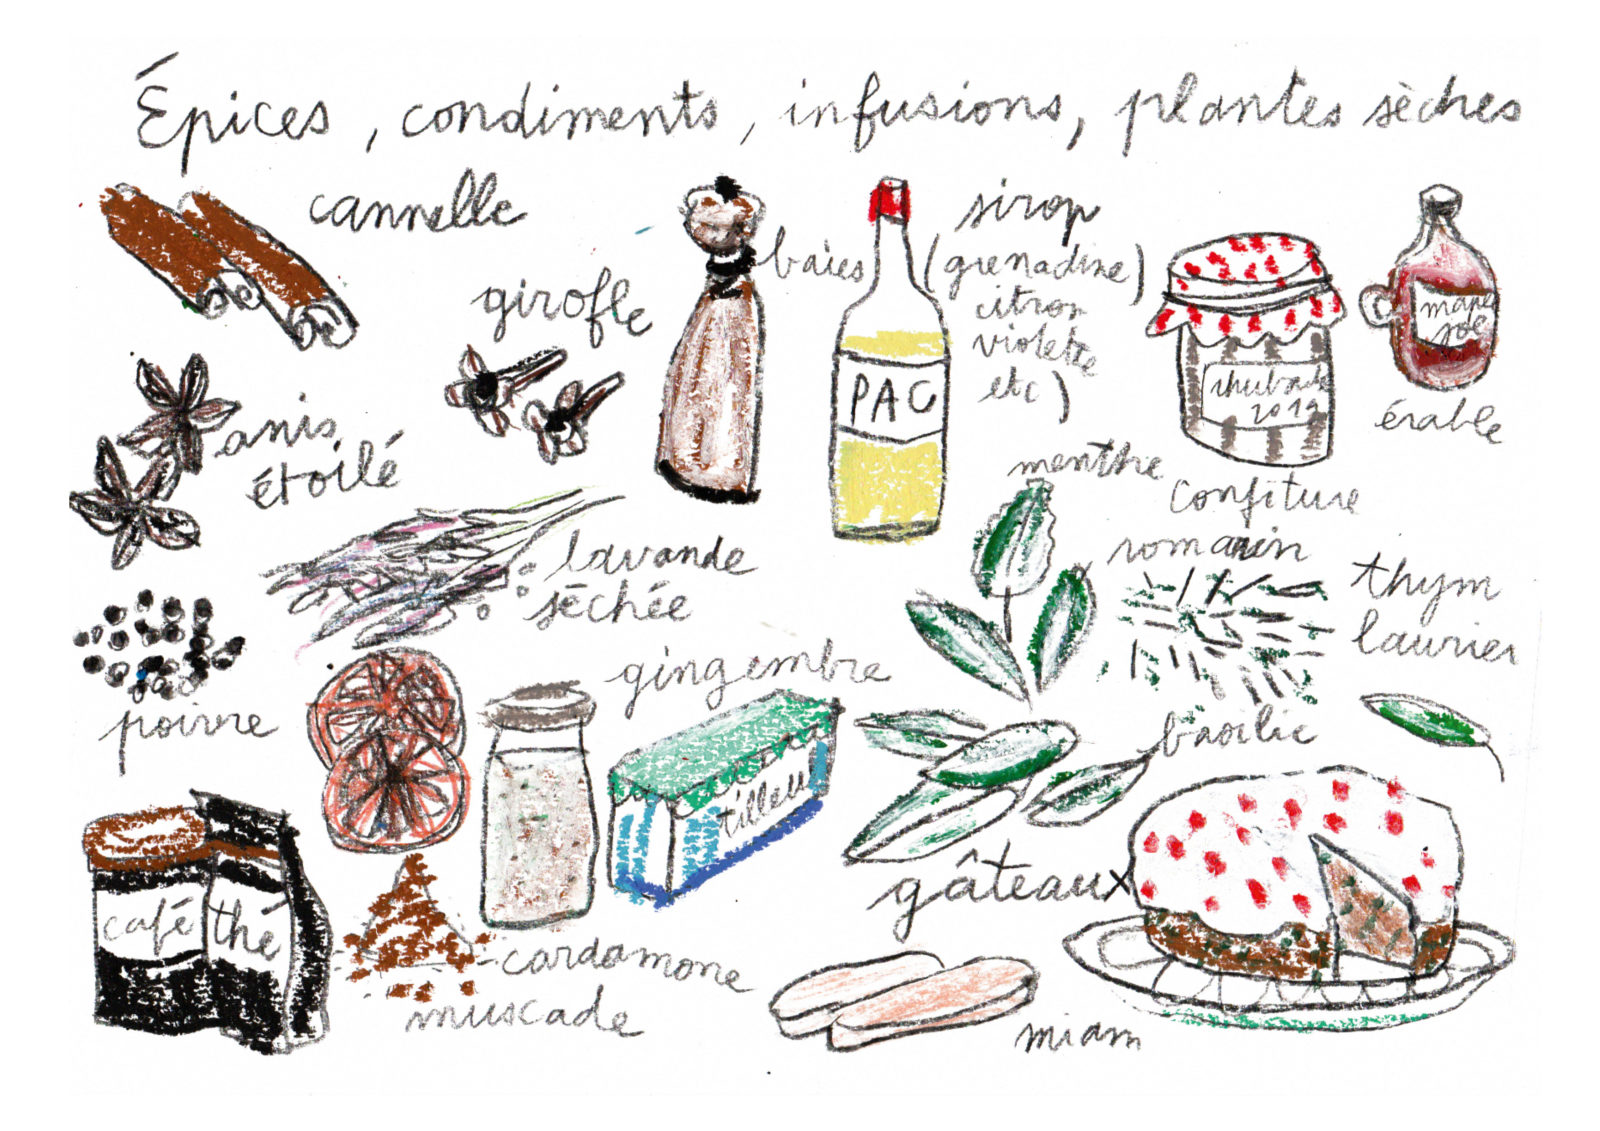 Épices, condiments, infusions, plantes sèches
cannelle
girofle
baies
sirop
(grenadine)
citron
violette
etc)
PAC
rhubarbe
confiture
érable
anis
étoilé
lavande
séchée
menthe
romarin
thym
laurier
poivre
gingembre
tilleul
basilic
café
thé
cardamone
muscade
gâteaux
miam